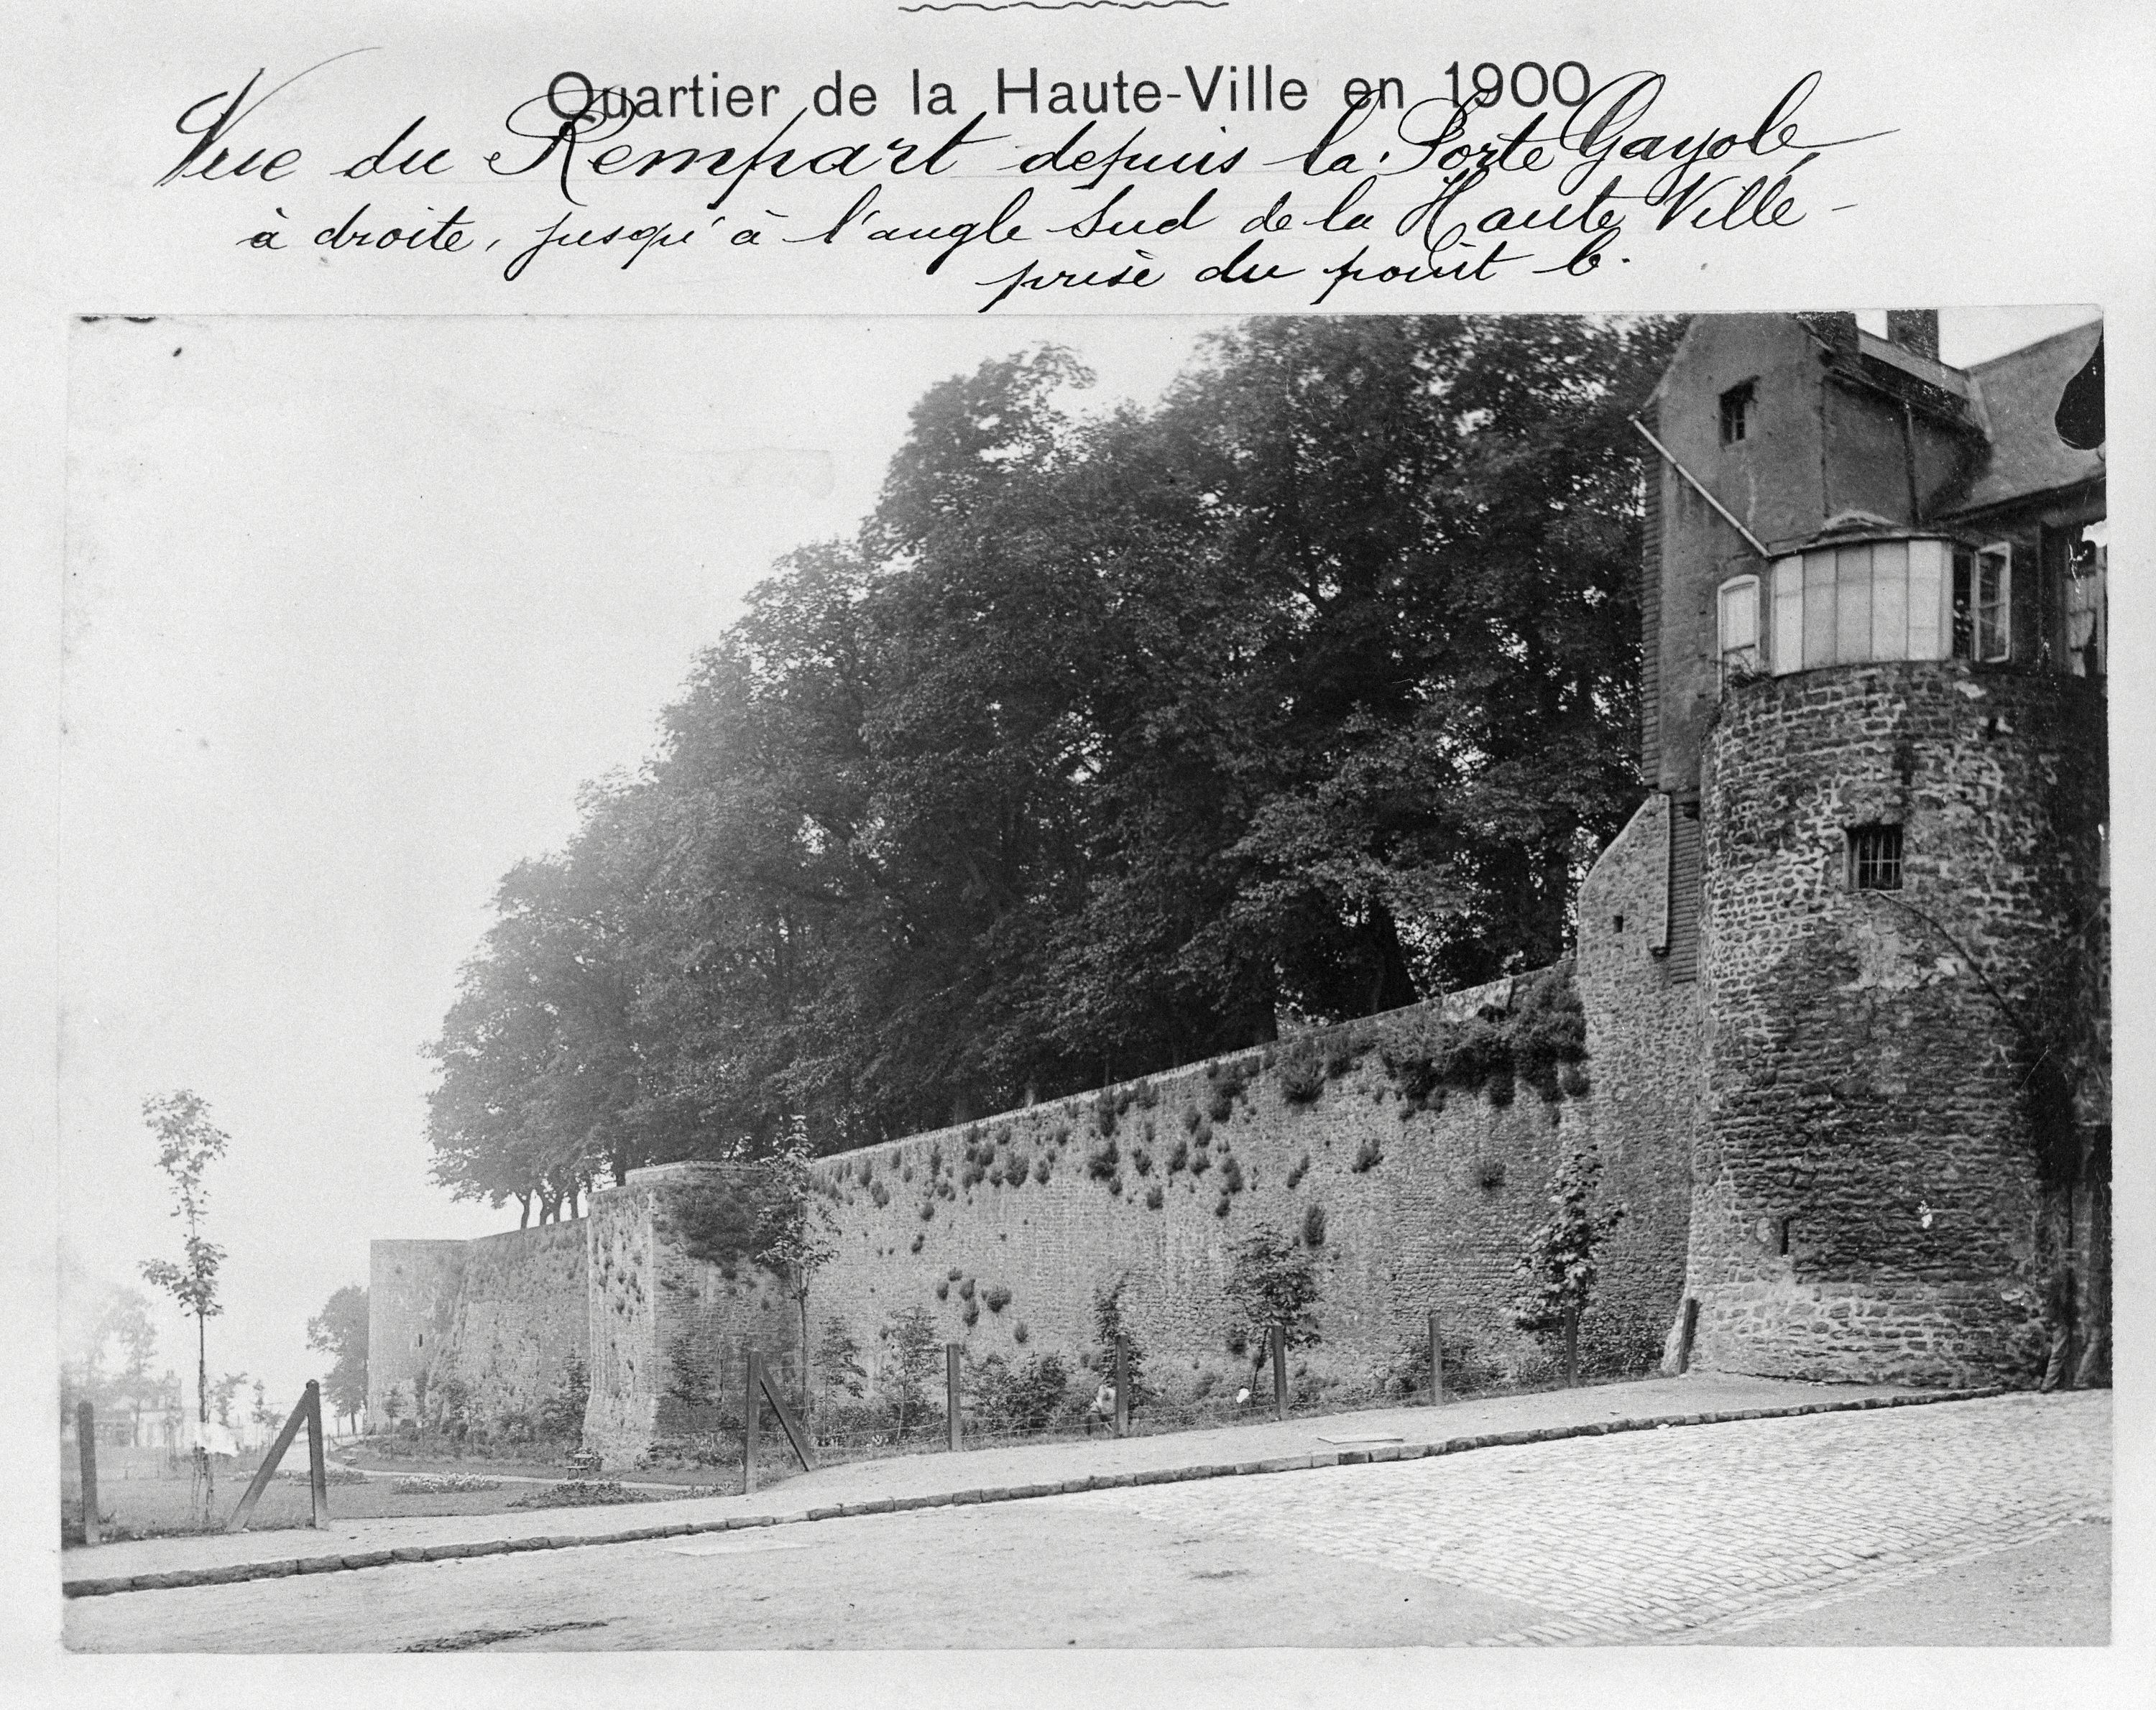 Quartier de la Haute-Ville en 1900
Vue du Rempart depuis la Porte Gayole,
à droite, jusqu'à l'angle Sud de la Haute Ville -
prise du point b.